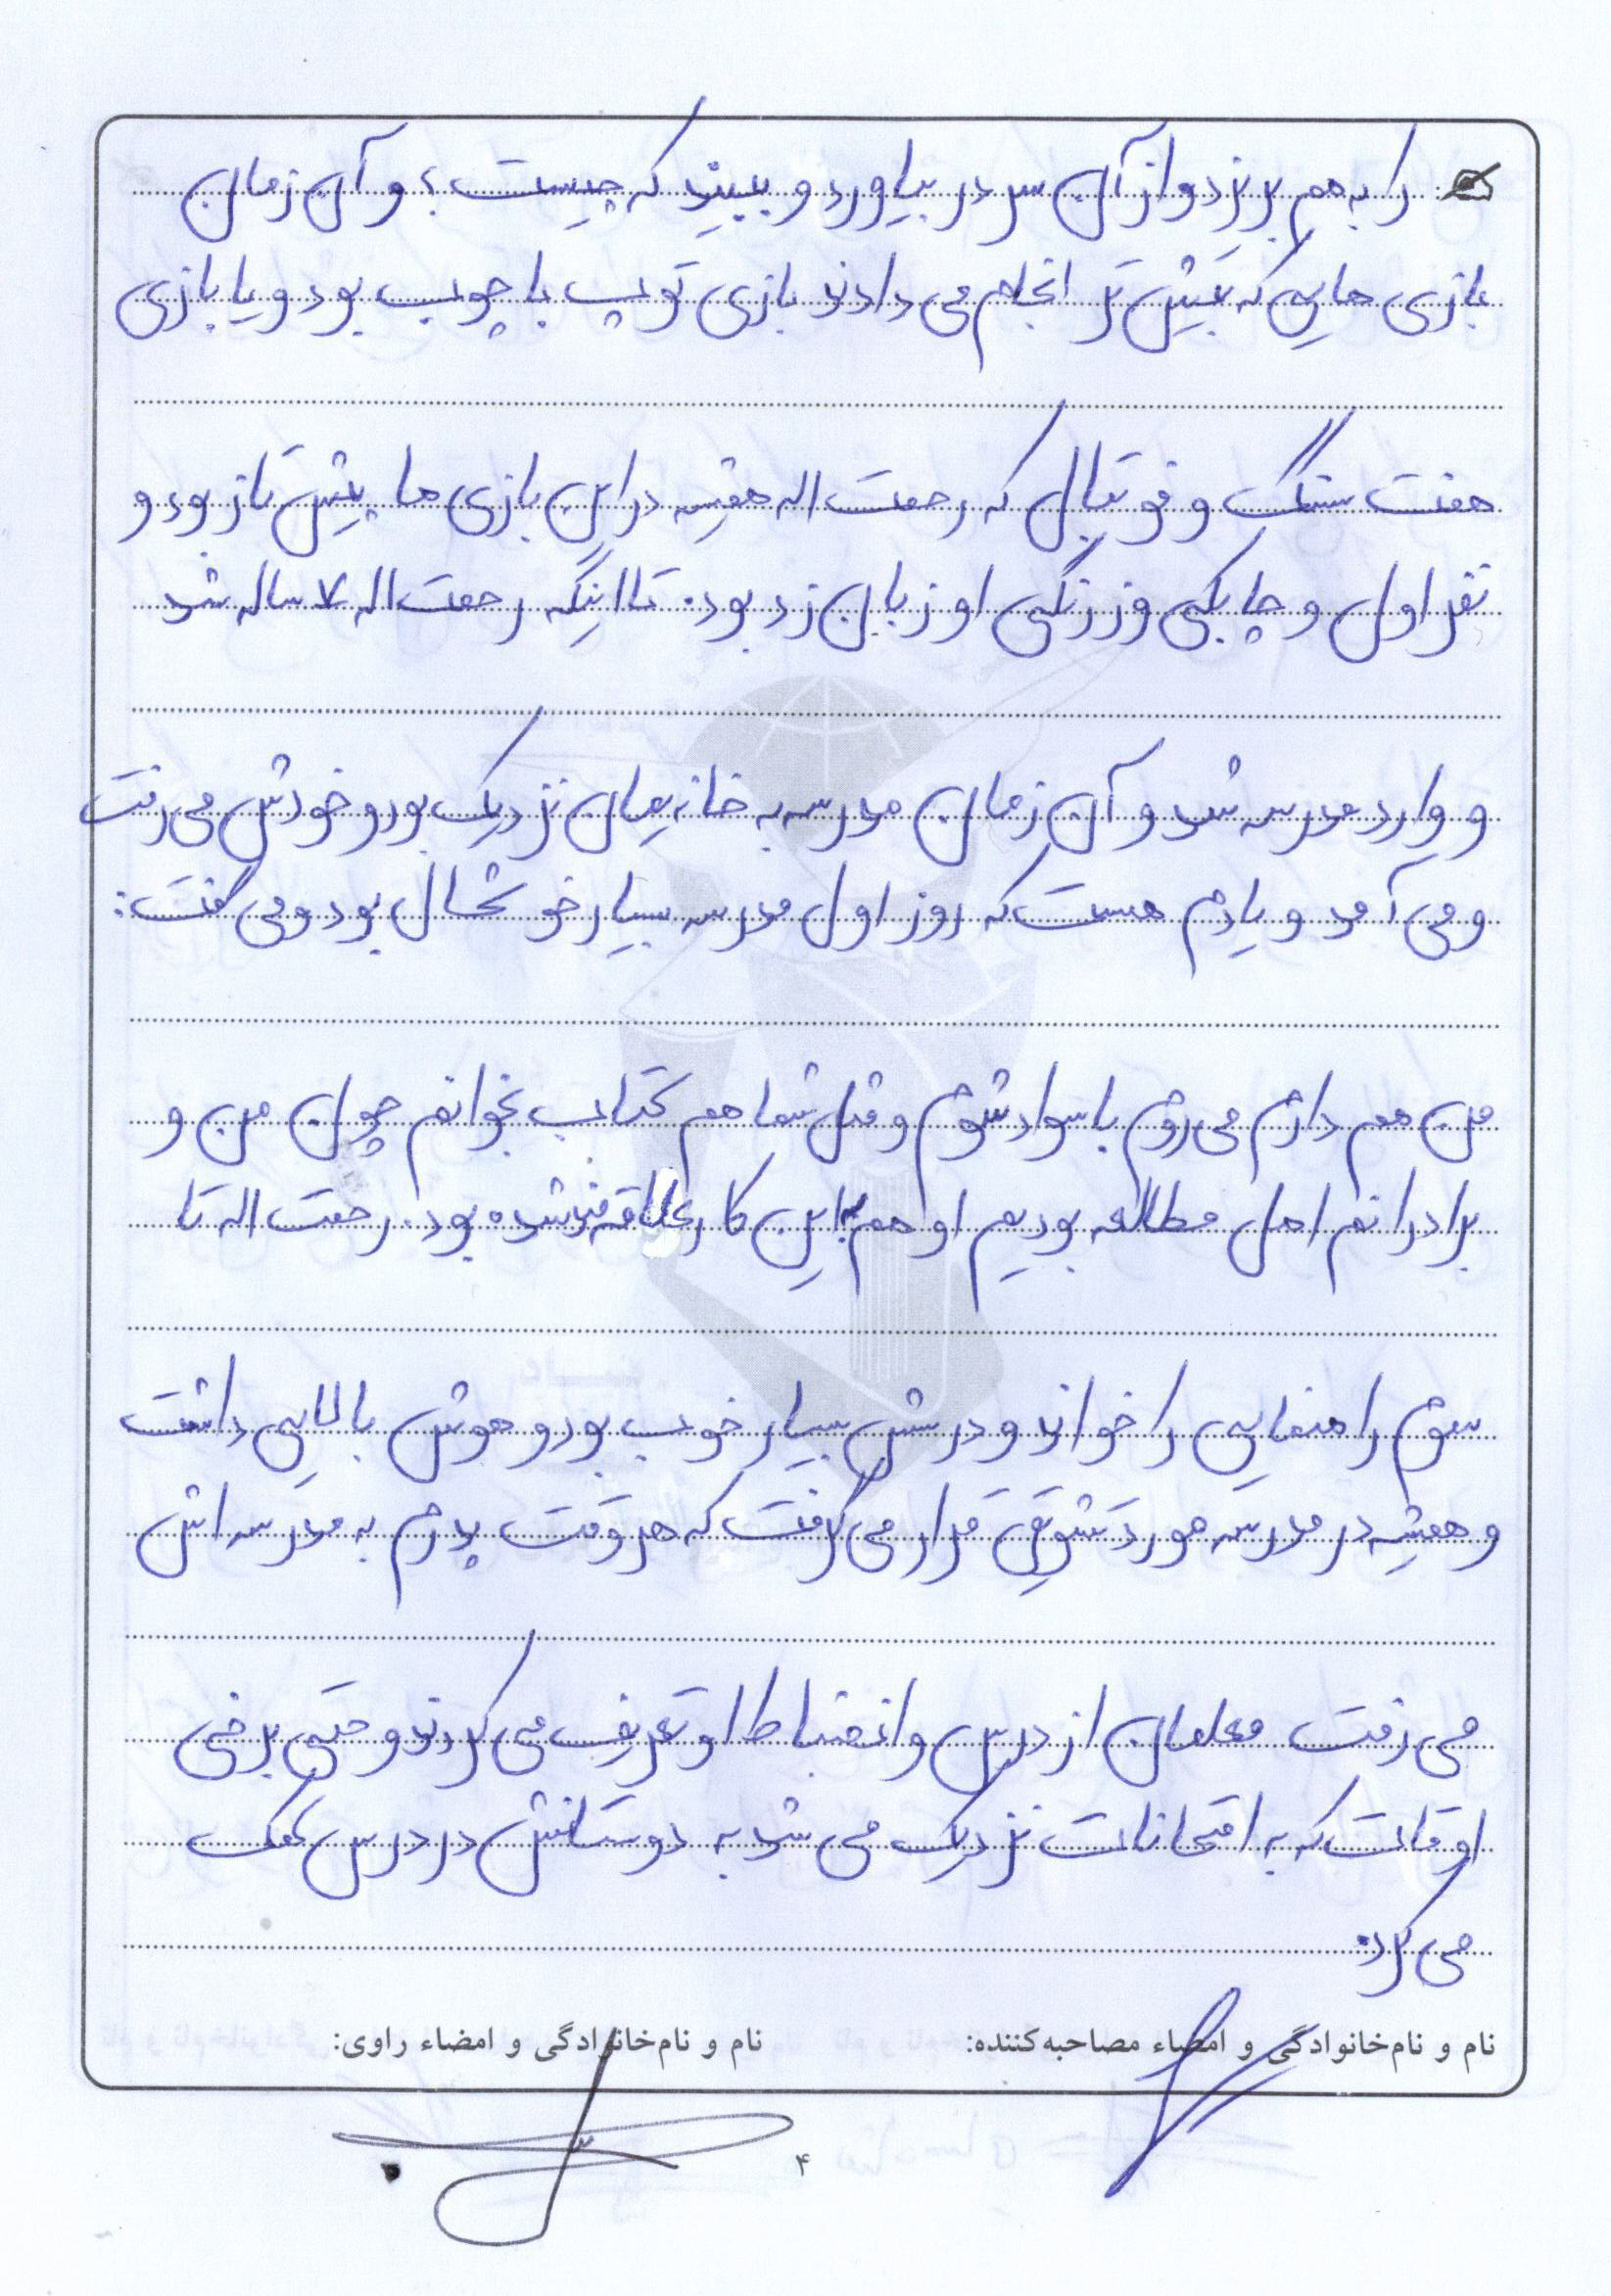 را به هم بریزد و از آن سر در بیاورد و ببیند که چیست؟ و آن زمان
بازی هایی که بیش تر انجام می دادند بازی توپ با چوب بود و یا بازی
هفت سنگ و فوتبال که رحمت اله همیشه در این بازی ها پیش تاز بود و
نفر اول و چابکی و زرنگی او زبان زد بود. تا اینکه رحمت اله ۷ ساله شد
و وارد مدرسه شد و آن زمان مدرسه به خانه یمان نزدیک بود و خودش می رفت
و می آمد و یادم هست که روز اول مدرسه بسیار خوشحال بود و می گفت:
من هم دارم می روم با سواد شوم و مثل شما هم کتاب بخوانم چون من و
برادرانم اهل مطالعه بودیم او هم به این کار علاقه مند شده بود. رحمت اله تا
سوم راهنمایی را خواند و درسش بسیار خوب بود و هوش بالایی داشت
و همیشه در مدرسه مورد تشویق قرار می گرفت که هر وقت پدرم به مدرسه اش
می رفت معلمان از درس و انضباط او تعریف می کردند و حتی برخی
اوقات که به امتحانات نزدیک می شد به دوستانش در درس کمک
می کرد.
نام و نام‌خانوادگی و امضاء مصاحبه‌کننده: نام و نام‌خانوادگی و امضاء راوی:
۴